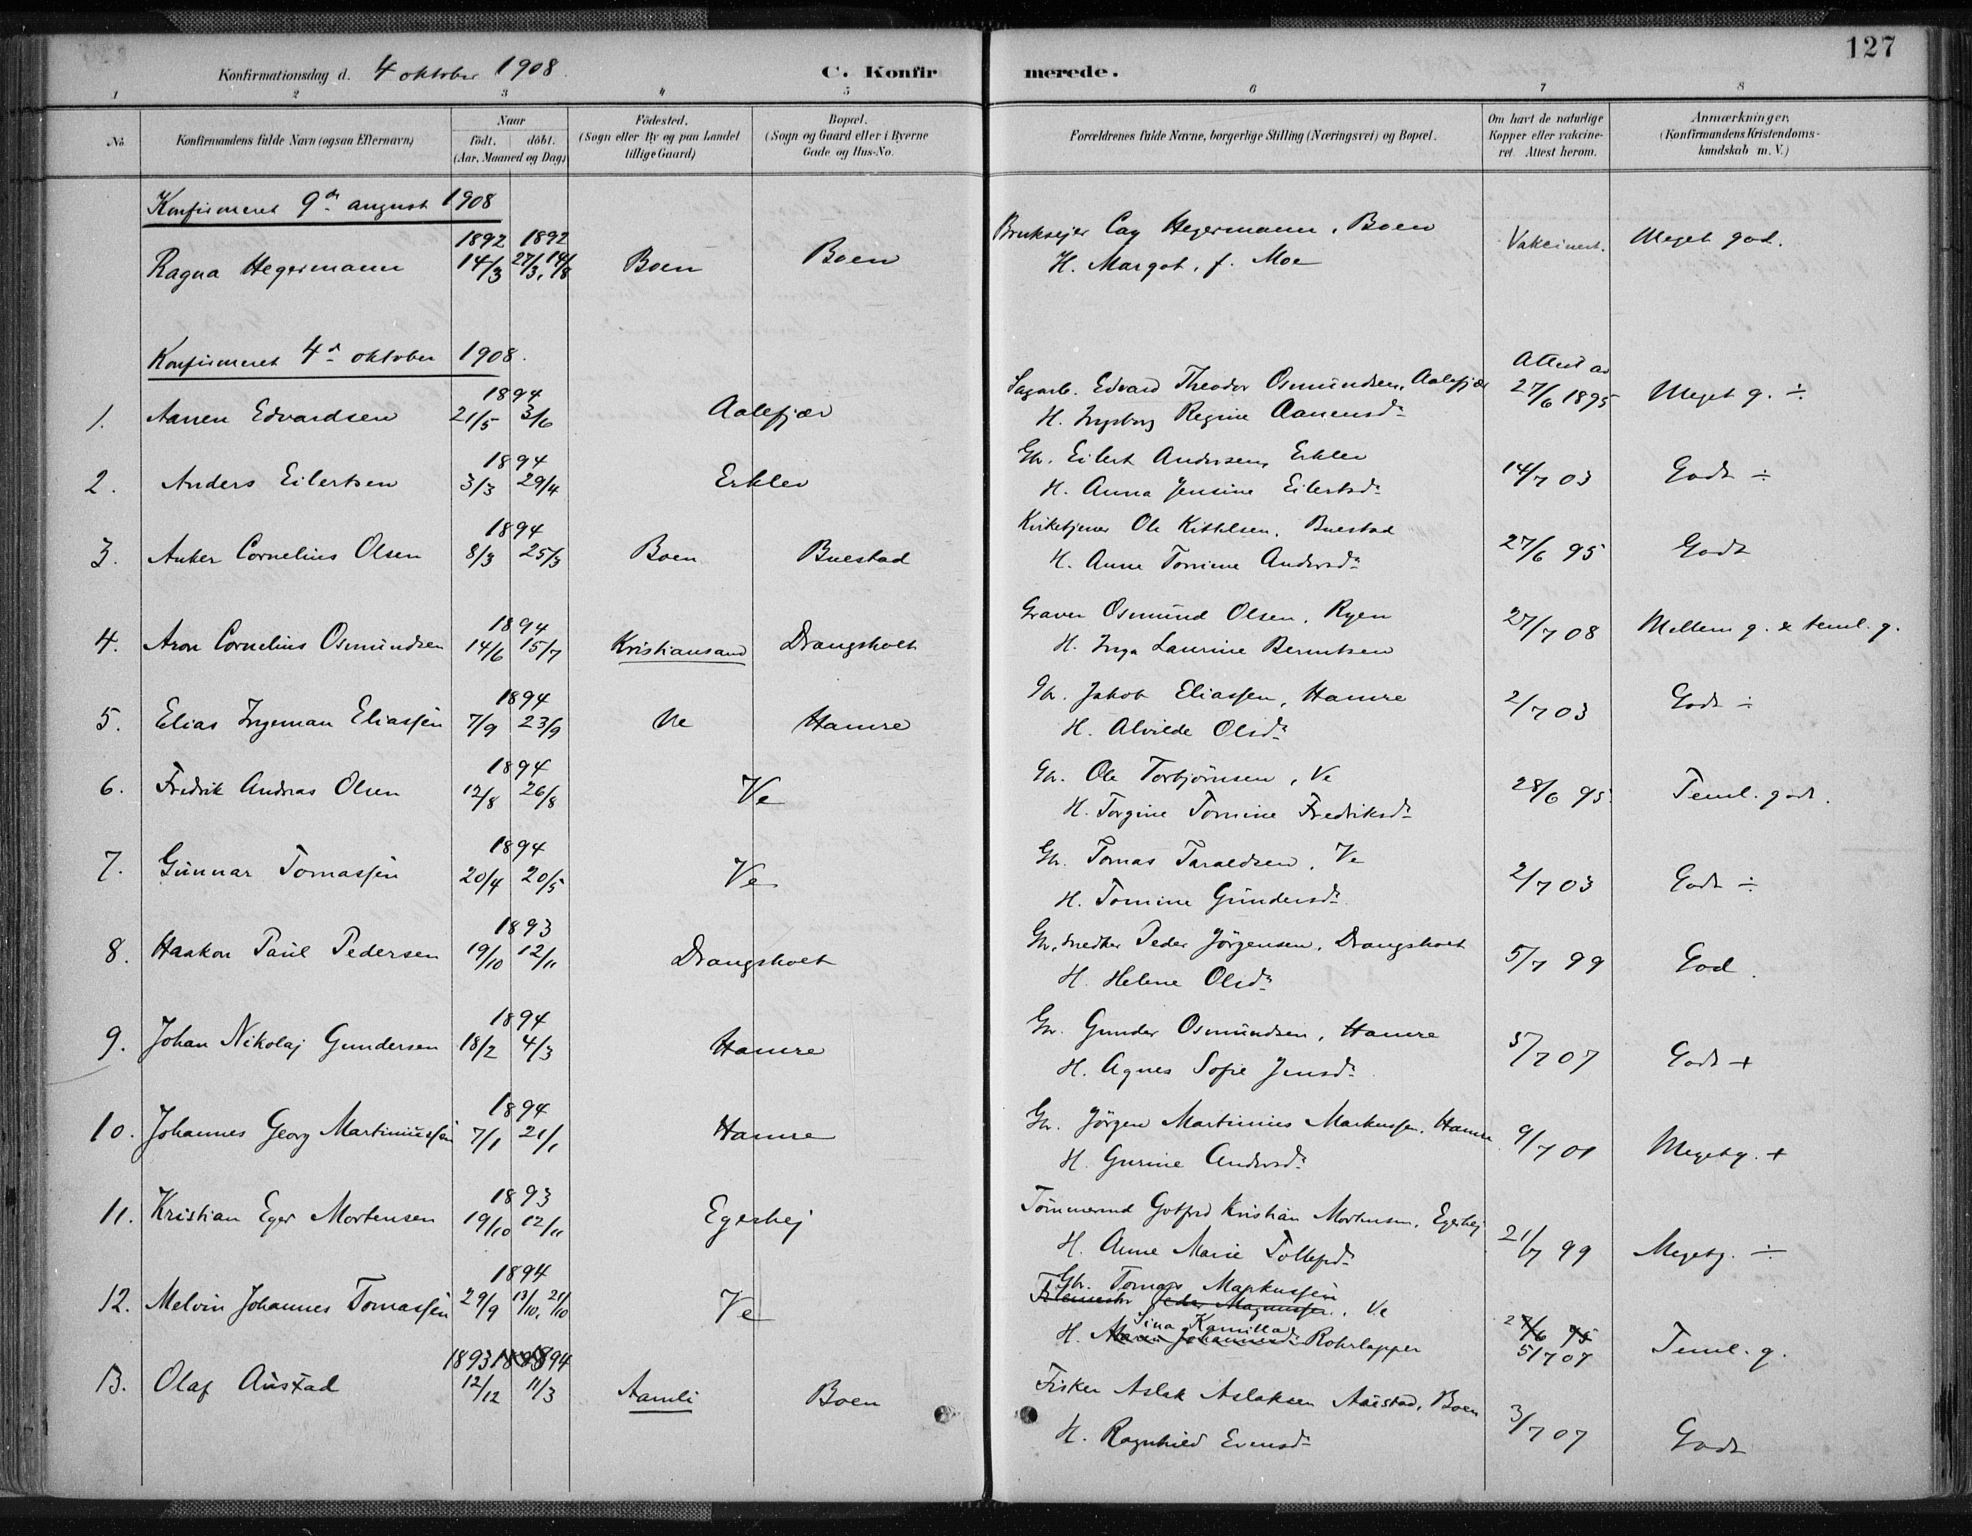 127
Konfirmationsdag d. 4 oktober 1908.
C. Konfirmerede.
1 2 3 4 5 6 7 8
No. Konfirmandens fulde Navn (ogsaa Efternavn) Naar født. døbt. (Aar, Maaned og Dag) Fødested. (Sogn eller By og paa Landet tillige Gaard) Bopæl. (Sogn og Gaard eller i Byerne Gade og Hus-No. Forældrenes fulde Navne, borgerlige Stilling (Næringsvei) og Bopæl. Om havt de naturlige Kopper eller vakcineret. Attest herom. Anmærkninger, (Konfirmandens Kristendomskundskab m. V.)
Konfirmeret 9de august 1908
Ragna Hegermann 1892 14/3 1892 27/3, 14/8 Boen Boen Bruksejer Cay Hegermann, Boen Vakcinert. Meget god.
H. Margot, f. Moe
Konfirmeret 4d oktober 1908.
1. Aanen Edvardsen 1894 21/5 3/6 Aalefjær Sagarb. Edvard Theodor Osmundsen, Aalefjær Attest av 27/6 1895 Meget g. ÷
H. Ingeborg Regine Aanensdr
2. Anders Eilertsen 1894 3/3 29/4 Erklev Gbr. Eilert Andersen, Erklev 14/7 03 Godt ÷
H. Anna Jensine Eilertsdr
3. Anker Cornelius Olsen 1894 8/3 25/3 Boen Buestad Kirketjener Ole Kittelsen, Buestad 27/6 95 Godt
H. Anne Tomine Andersdr
4. Aron Cornelius Osmundsen 1894 14/6 15/7 Kristiansand Drangsholt Graver Osmund Olsen, Ryen 27/7 08 Mellem g. x teml. g.
H. Inga Laurine Berntsen
5. Elias Ingeman Eliassen 1894 7/9 23/9 Ve Hamre Gbr. Jakob Eliassen, Hamre 2/7 03 Godt ÷
H. Alvilde Olsdr
6. Fredrik Andreas Olsen 1894 12/8 26/8 Ve Gbr. Ole Torbjørnsen, Ve 28/6 95 Teml. godt.
H. Torgine Tomine Fredriksdr
7. Gunnar Tomassen 1894 20/4 20/5 Ve Gbr. Tomas Taraldsen, Ve 2/7 03 Godt ÷
H. Tomine Gundersdr
8. Haakon Paul Pedersen 1893 19/10 12/11 Drangsholt Gbr, snedker Peder Jørgensen, Drangsholt 5/7 99 God.
H. Helene Olsdr
9. Johan Nikolaj Gundersen 1894 18/2 4/3 Hamre Gbr. Gunder Osmundsen, Hamre 5/7 07 Godt +
H. Agnes Sofie Jensdr
10. Johannes Georg Martiniussen 1894 7/1 21/1 Hamre Gbr. Jørgen Martinius Markussen, Hamre 9/7 01 Meget g. +
H. Gurine Andersdr
11. Kristian Eger Mortensen 1893 19/10 12/11 Egeshej Tømmermd Gotfred Kristian Mortensen, Egeshej 21/7 99 Meget g. ÷
H. Anne Marie Tollefsdr
12. Melvin Johannes Tomassen 1894 29/9 13/10, 21/10 Ve Gbr. Tomas Markussen
Peder Magnussen, Ve 27/6 95
H. Sina Kamilla Maria Johannesdr Rohrlapper 5/7 07 Teml. g.
13. Olaf Austad 1893 12/12 1894 11/3 Aamli Boen Fisker Aslak Aslaksen Austad, Boen 3/7 07 Godt
H. Ragnhild Evensdr